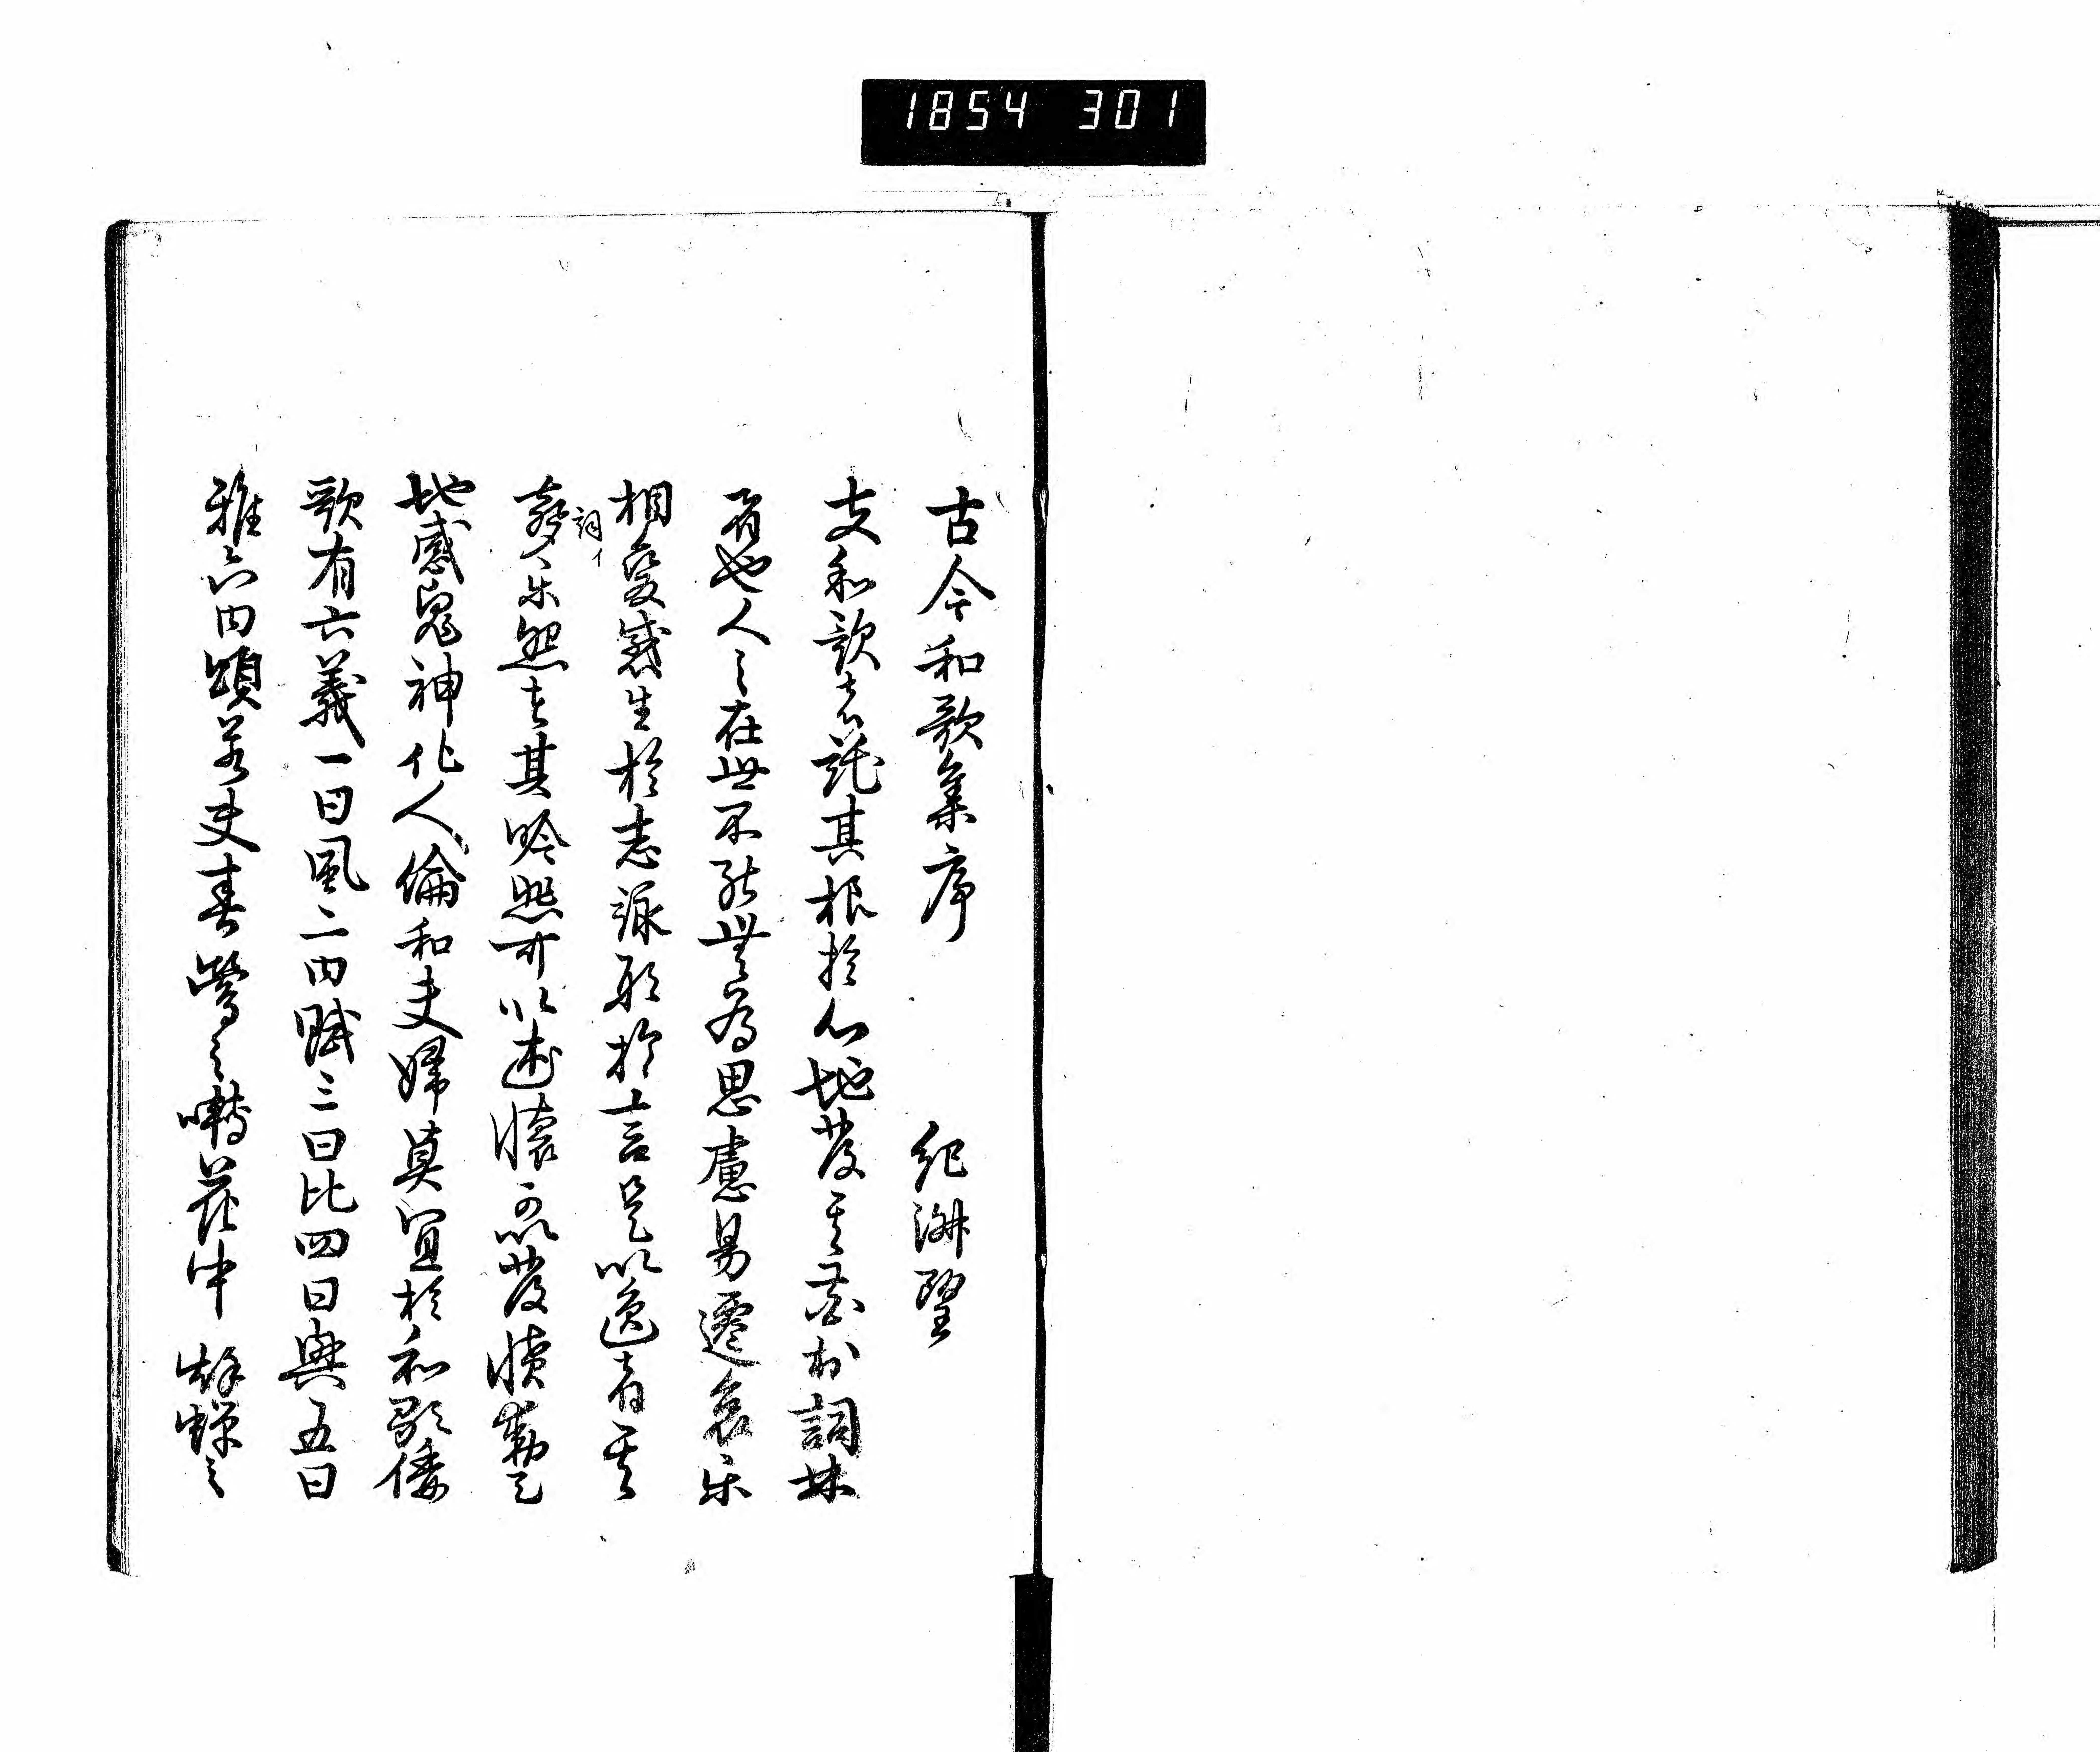 1854 301
古今和歌集序 紀淑望
夫和歌者託其根於心地發其花於詞林
者也人之在世不能無為思慮易遷哀楽
相變感生於志詠形於言是以逸者其
詞イ
聲楽怨者其吟悲可以述懐可以發憤動天
地感鬼神化人倫和夫婦莫宜於和歌倭
歌有六義一曰風二曰賦三曰比四曰興五曰
雅六曰頌若夫春鶯之囀花中秋蝉之